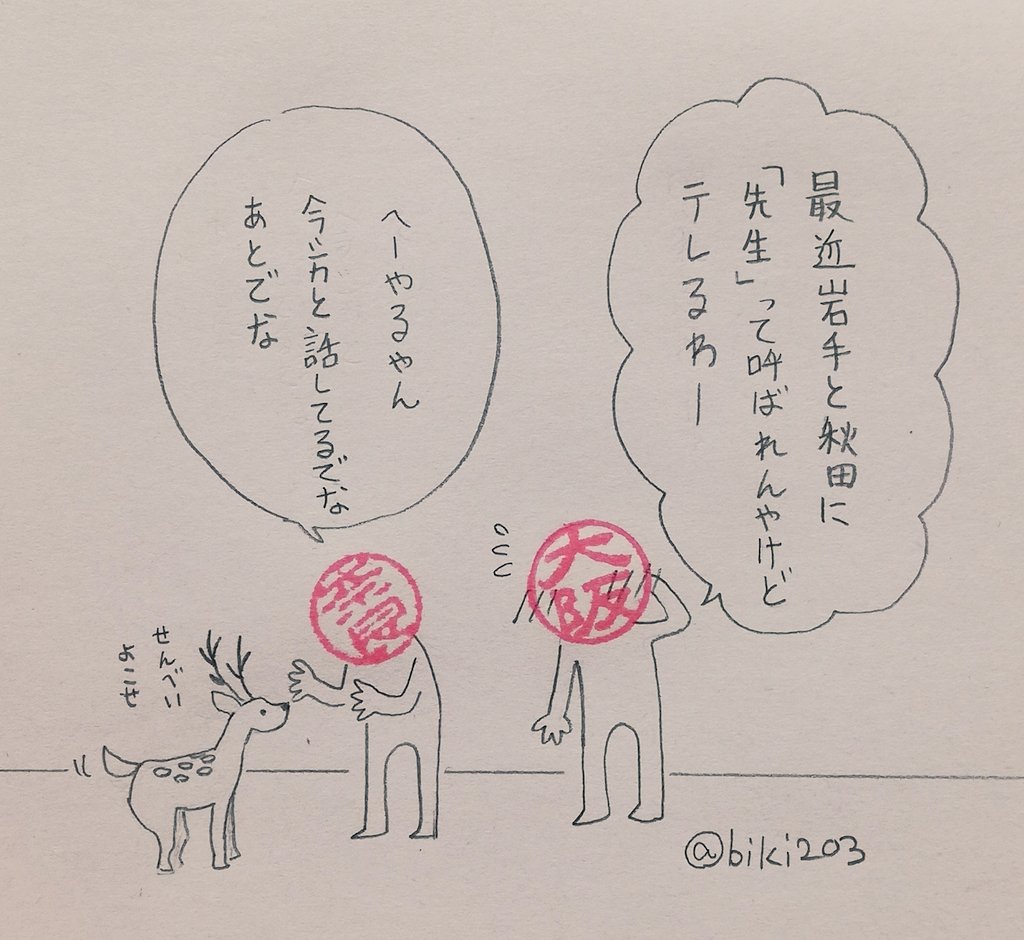 最近岩手と秋田に
「先生」って呼ばれんやけど
テレるわー
へーやるやん
今シカと話してるでな
あとでな
大阪
奈良
せんべい
よこせ
@biki203